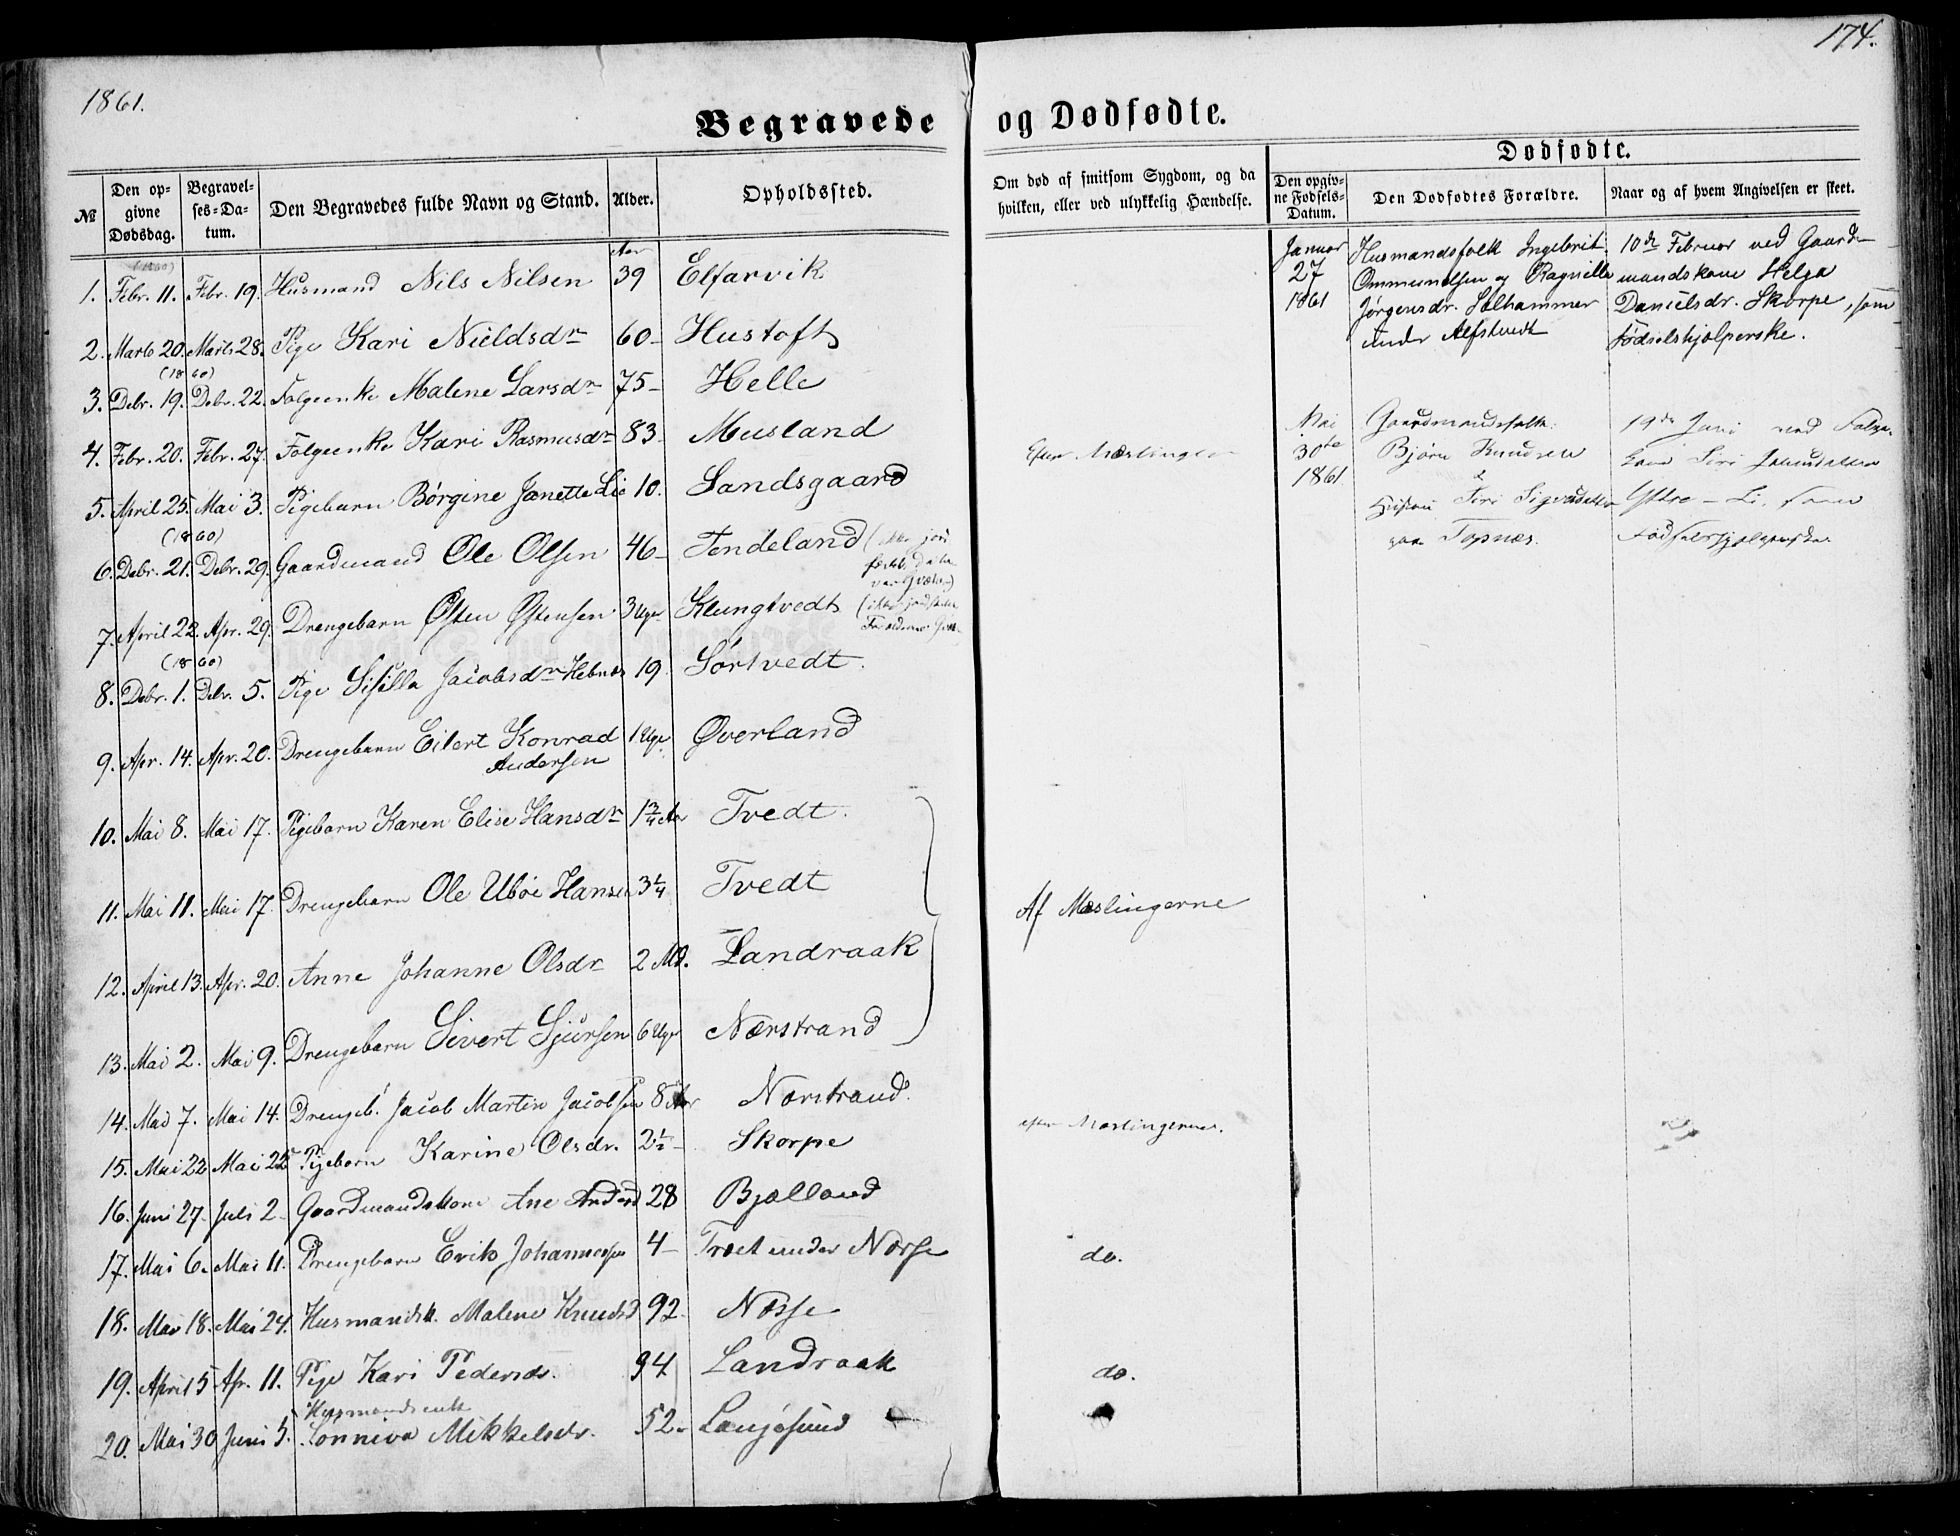 1861.
174.
Begravede og Dødfødte.
№
Den opgivne Dødsdag.
Begravelses-Datum.
Den Begravedes fulde Navn og Stand.
Alder.
Opholdssted.
Om død af smitsom Sygdom, og da hvilken, eller ved ulykkelig Hændelse.
Dødfødte.
Den opgivne Fødsels-Datum.
Den Dødfødtes Forældre.
Naar og af hvem Angivelsen er skeet.
Aar
(1860)
1. Febr. 11. Febr. 19. Husmand Nils Nilsen 39 Elfarvik
2. Marts 20. Marts 28. Pige Kari Nieldsdr 60- Hustoft
(1860)
3. Debr. 19. Debr. 22. Folgeenke Malene Larsdr 75- Helle
4. Febr. 20. Febr. 27. Folgeenke Kari Rasmusdr 83- Musland
5. April 25. Mai 3. Pigebarn Børgine Janette Lie 10. Sandsgaard
(1860)
6. Debr. 21. Debr. 29. Gaardmand Ole Olsen 46- Tendeland
7. April 22. Apr. 29. Drengebarn Østen Østensen 3 Uger Klungtvedt
(1860)
8. Debr. 1. Debr. 5. Pige Sisilla Jacobsdr Hebnes 19 Sørtvedt.
9. Apr. 14. Apr. 20. Drengebarn Eilert Konrad 1 Uge Øverland
Andersen
10. Mai 8. Mai 17. Pigebarn Karen Elise Hansdr 1 3/4 Aar Tvedt.
11. Mai 11. Mai 17. Drengebarn Ole Ubøe Hansen 3 1/4 Tvedt
Af Mæslingerne
12. April 13. Apr. 20. Anne Johanne Olsdr 2 Md. Landraak
13. Mai 2. Mai 9. Drengebarn Sivert Sjursen 6 Uger Nærstrand
14. Mai 7. Mai 14. Drengeb. Jacob Martin Jacobsen 8 Aar Nærstrand.
15. Mai 22 Mai 25 Pigebarn Karine Olsdr. 2 1/2- Skorpe
efter Mæslingerne.
16. Juni 27. Juli 2- Gaardmandskone Ane Andersd 28 Bjælland
17. Mai 6. Mai 11. Drengebarn Erik Johannessen 4- Træet under Næsse
do.
18. Mai 18. Mai 24. Husmandsk. Malene Knudsd 92. Næsse
19. April 5. Apr. 11. Pige Kari Pedersdr. 94 Landraak
do.
Husmandsenke
20. Mai 30 Juni 5. Sønneva Mikkelsdr. 52-
Efter Mæslinger
Januar 27 1861
Husmandsfolk Ingebrit
Ommundsen og Ragnille
Jørgensdr. Solhammer
under Alfstvedt
10de Februar ved Gaard-
mandskone Helga
Danielsdr. Skorpe, som
Fødselshjælperske.
Mai 30te 1861
Gaardmandsfolk
Bjørn Knudsen
&
Hustru Siri Sigvrdsdatter
paa Topnæs.
19de Juni ved Folge-
kone Siri
Ystre-Li, som
Fødselshjælperske